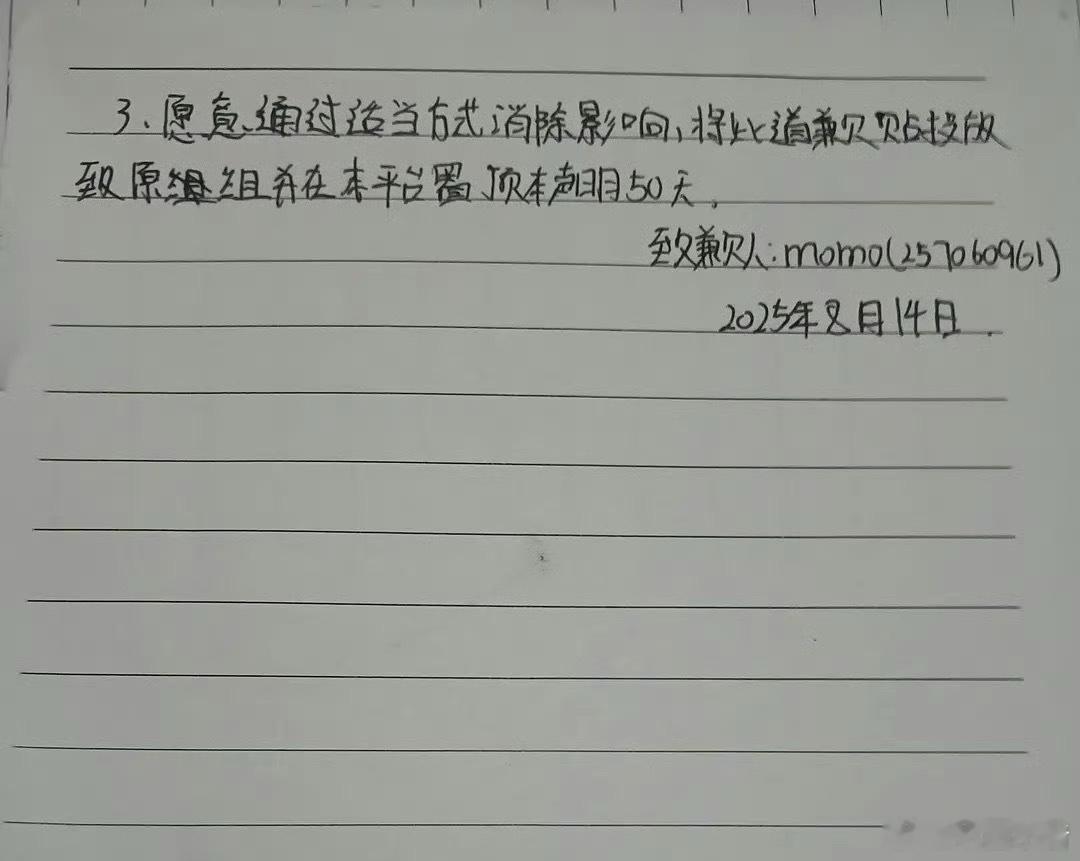 3、愿意通过适当方式消除影响,将此道歉贴投放
致原组组并在本平台置顶本声明50天。
致歉人:momo(257060961)
2025年8月14日.